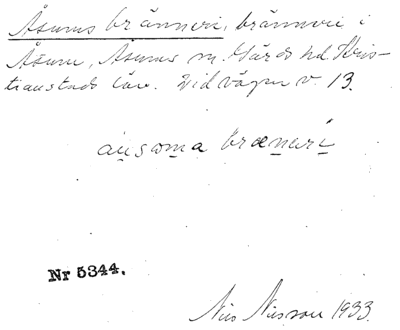 Åsums bränneri, bränneri i
Åsum, Åsums sn. Gärds hd. Kris-
tianstads län. Vid vägen v. 13.
ausoma brænəri
Nr 5344.
Nils Nilsson 1933.